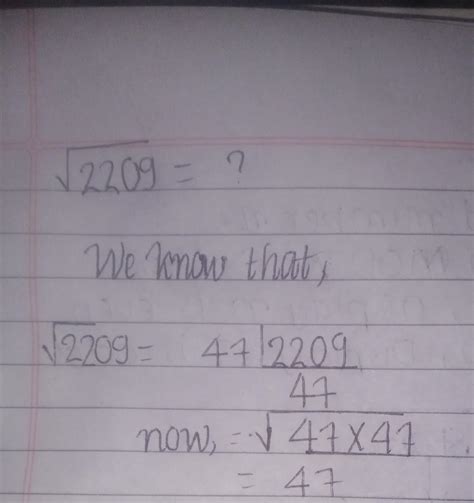 √2209 = ?
We know that,
√2209 = 47|2209
47
now, = √47×47
= 47